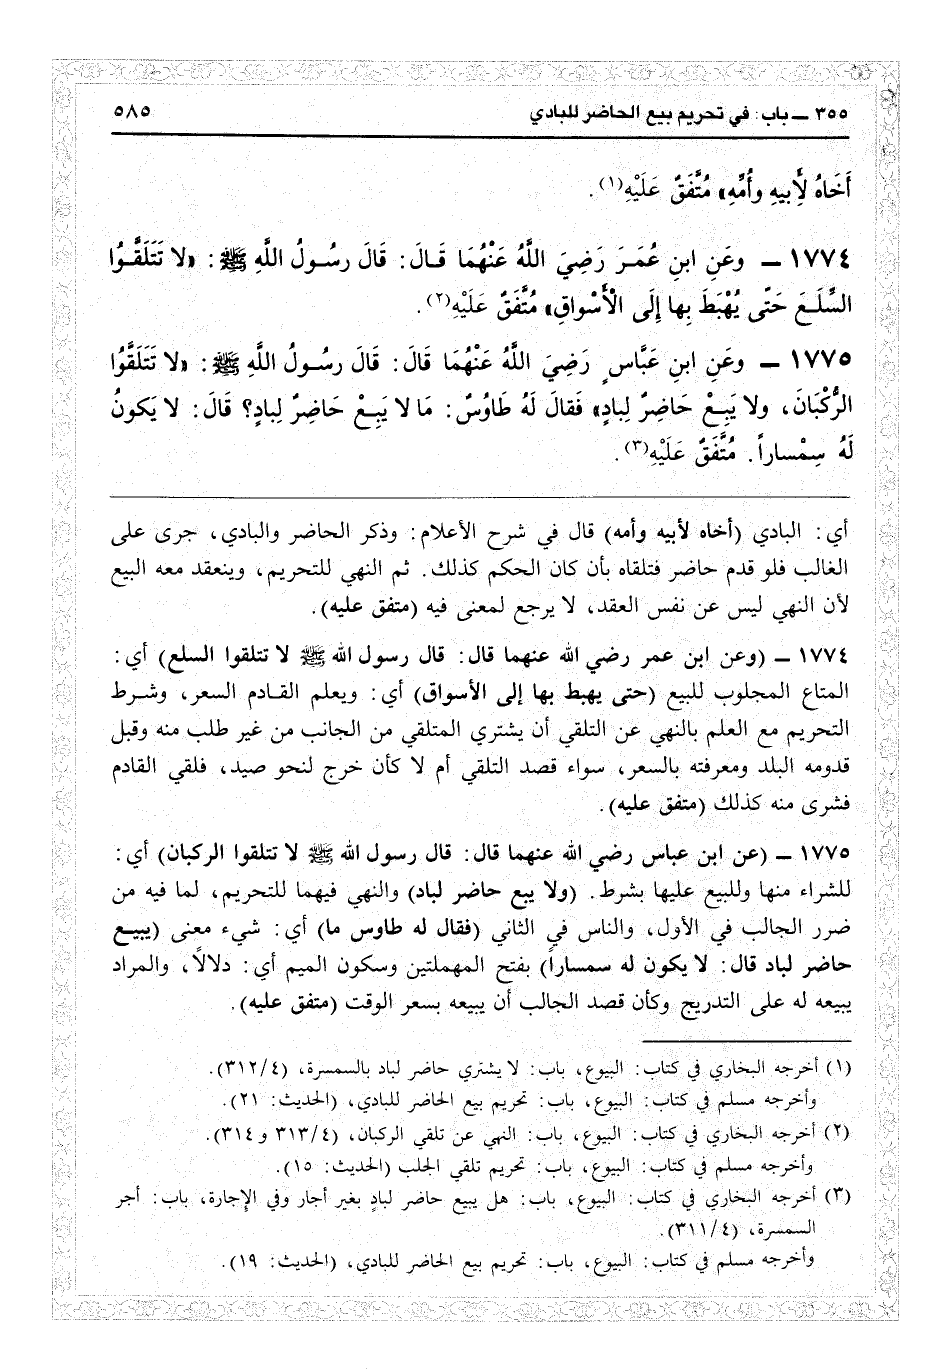 ٣٥٥ ــ باب: في تحريم بيع الحاضر للبادي ٥٨٥
أَخَاهُ لِأَبِيهِ وأُمِّهِ» مُتَّفَقٌ عَلَيْهِ(١).
١٧٧٤ ــ وعَنِ ابنِ عُمَـرَ رَضِيَ اللَّهُ عَنْهُمَا قَـالَ: قَالَ رسُـولُ اللَّهِ ﷺ: «لا تَتَلَقَّـوُا
السِّلَـعَ حَتَّى يُهْبَطَ بِها إِلَى الْأَسْواقِ» مُتَّفَقٌ عَلَيْهِ(٢).
١٧٧٥ ــ وعَنِ ابنِ عَبَّاسٍ رَضِيَ اللَّهُ عَنْهُمَا قَالَ: قَالَ رسُـولُ اللَّهِ ﷺ: «لا تَتَلَقَّوُا
الرُّكْبَانَ، ولا يَبِـعْ حَاضِرٌ لِبادٍ» فَقالَ لَهُ طَاوُسٌ: مَا لا يَبِـعْ حَاضِرٌ لِبادٍ؟ قَالَ: لا يَكونُ
لَهُ سِمْساراً. مُتَّفَقٌ عَلَيْهِ(٣).
أي: البادي (أخاه لأبيه وأمه) قال في شرح الأعلام: وذكر الحاضر والبادي، جرى على
الغالب فلو قدم حاضر فتلقاه بأن كان الحكم كذلك. ثم النهي للتحريم، وينعقد معه البيع
لأن النهي ليس عن نفس العقد، لا يرجع لمعنى فيه (متفق عليه).
١٧٧٤ ــ (وعن ابن عمر رضي الله عنهما قال: قال رسول الله ﷺ لا تتلقوا السلع) أي:
المتاع المجلوب للبيع (حتى يهبط بها إلى الأسواق) أي: ويعلم القـادم السعر، وشـرط
التحريم مع العلم بالنهي عن التلقي أن يشتري المتلقي من الجانب من غير طلب منه وقبل
قدومه البلد ومعرفته بالسعر، سواء قصد التلقي أم لا كأن خرج لنحو صيد، فلقي القادم
فشرى منه كذلك (متفق عليه).
١٧٧٥ ــ (عن ابن عباس رضي الله عنهما قال: قال رسول الله ﷺ لا تتلقوا الركبان) أي:
للشراء منها وللبيع عليها بشرط. (ولا يبع حاضر لباد) والنهي فيهما للتحريم، لما فيه من
ضرر الجالب في الأول، والناس في الثاني (فقال له طاوس ما) أي: شيء معنى (يبيـع
حاضر لباد قال: لا يكون له سمساراً) بفتح المهملتين وسكون الميم أي: دلالاً، والمراد
يبيعه له على التدريج وكأن قصد الجالب أن يبيعه بسعر الوقت (متفق عليه).
(١) أخرجه البخاري في كتاب: البيوع، باب: لا يشتري حاضر لباد بالسمسرة، (٣١٢/٤).
وأخرجه مسلم في كتاب: البيوع، باب: تحريم بيع الحاضر للبادي، (الحديث: ٢١).
(٢) أخرجه البخاري في كتاب: البيوع، باب: النهي عن تلقي الركبان، (٣١٣/٤ و ٣١٤).
وأخرجه مسلم في كتاب: البيوع، باب: تحريم تلقي الجلب (الحديث: ١٥).
(٣) أخرجه البخاري في كتاب: البيوع، باب: هل يبيع حاضر لبادٍ بغير أجار وفي الإجارة، باب: أجر
السمسرة، (٣١١/٤).
وأخرجه مسلم في كتاب: البيوع، باب: تحريم بيع الحاضر للبادي، (الحديث: ١٩).